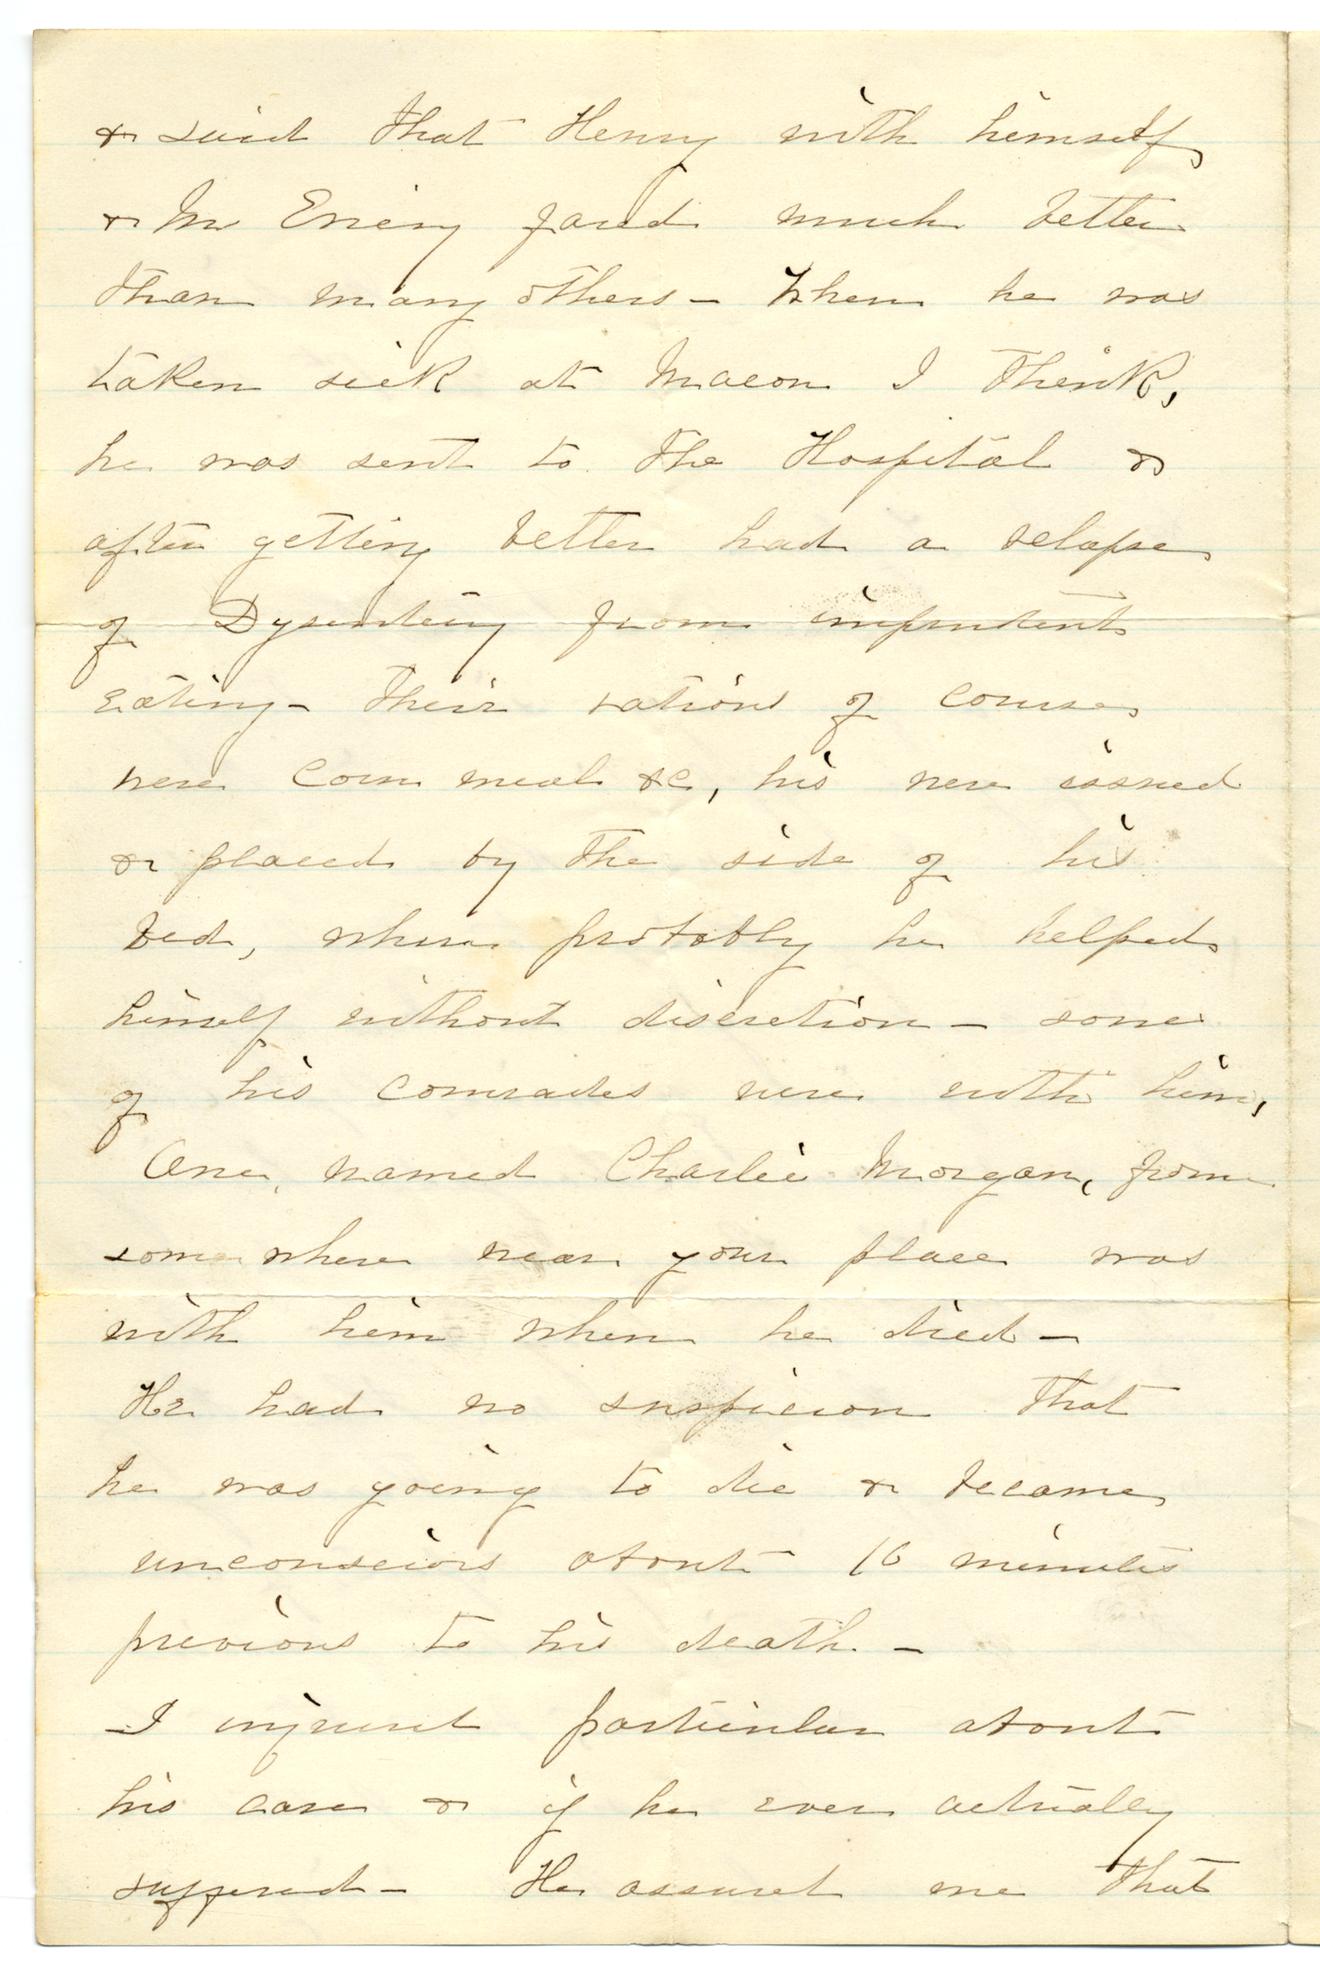 & said that Henry with himself
& Mr Emery fared much better
than many others – When he was
taken sick at Macon I think,
he was sent to the Hospital &
after getting better had a relapse
of Dysentery from imprudent
eating – Their rations of course
were Corn meal &c, his were issued
& placed by the side of his
bed, where probably he helped
himself without discretion – some
of his comrades were with him,
One, named Charlie Morgan, from
some where near your place was
with him when he died –
He had no suspicion that
he was going to die & became
unconscious about minutes
previous to his death. –
I particular about
his case & if he ever actually
suffered – He assured me that